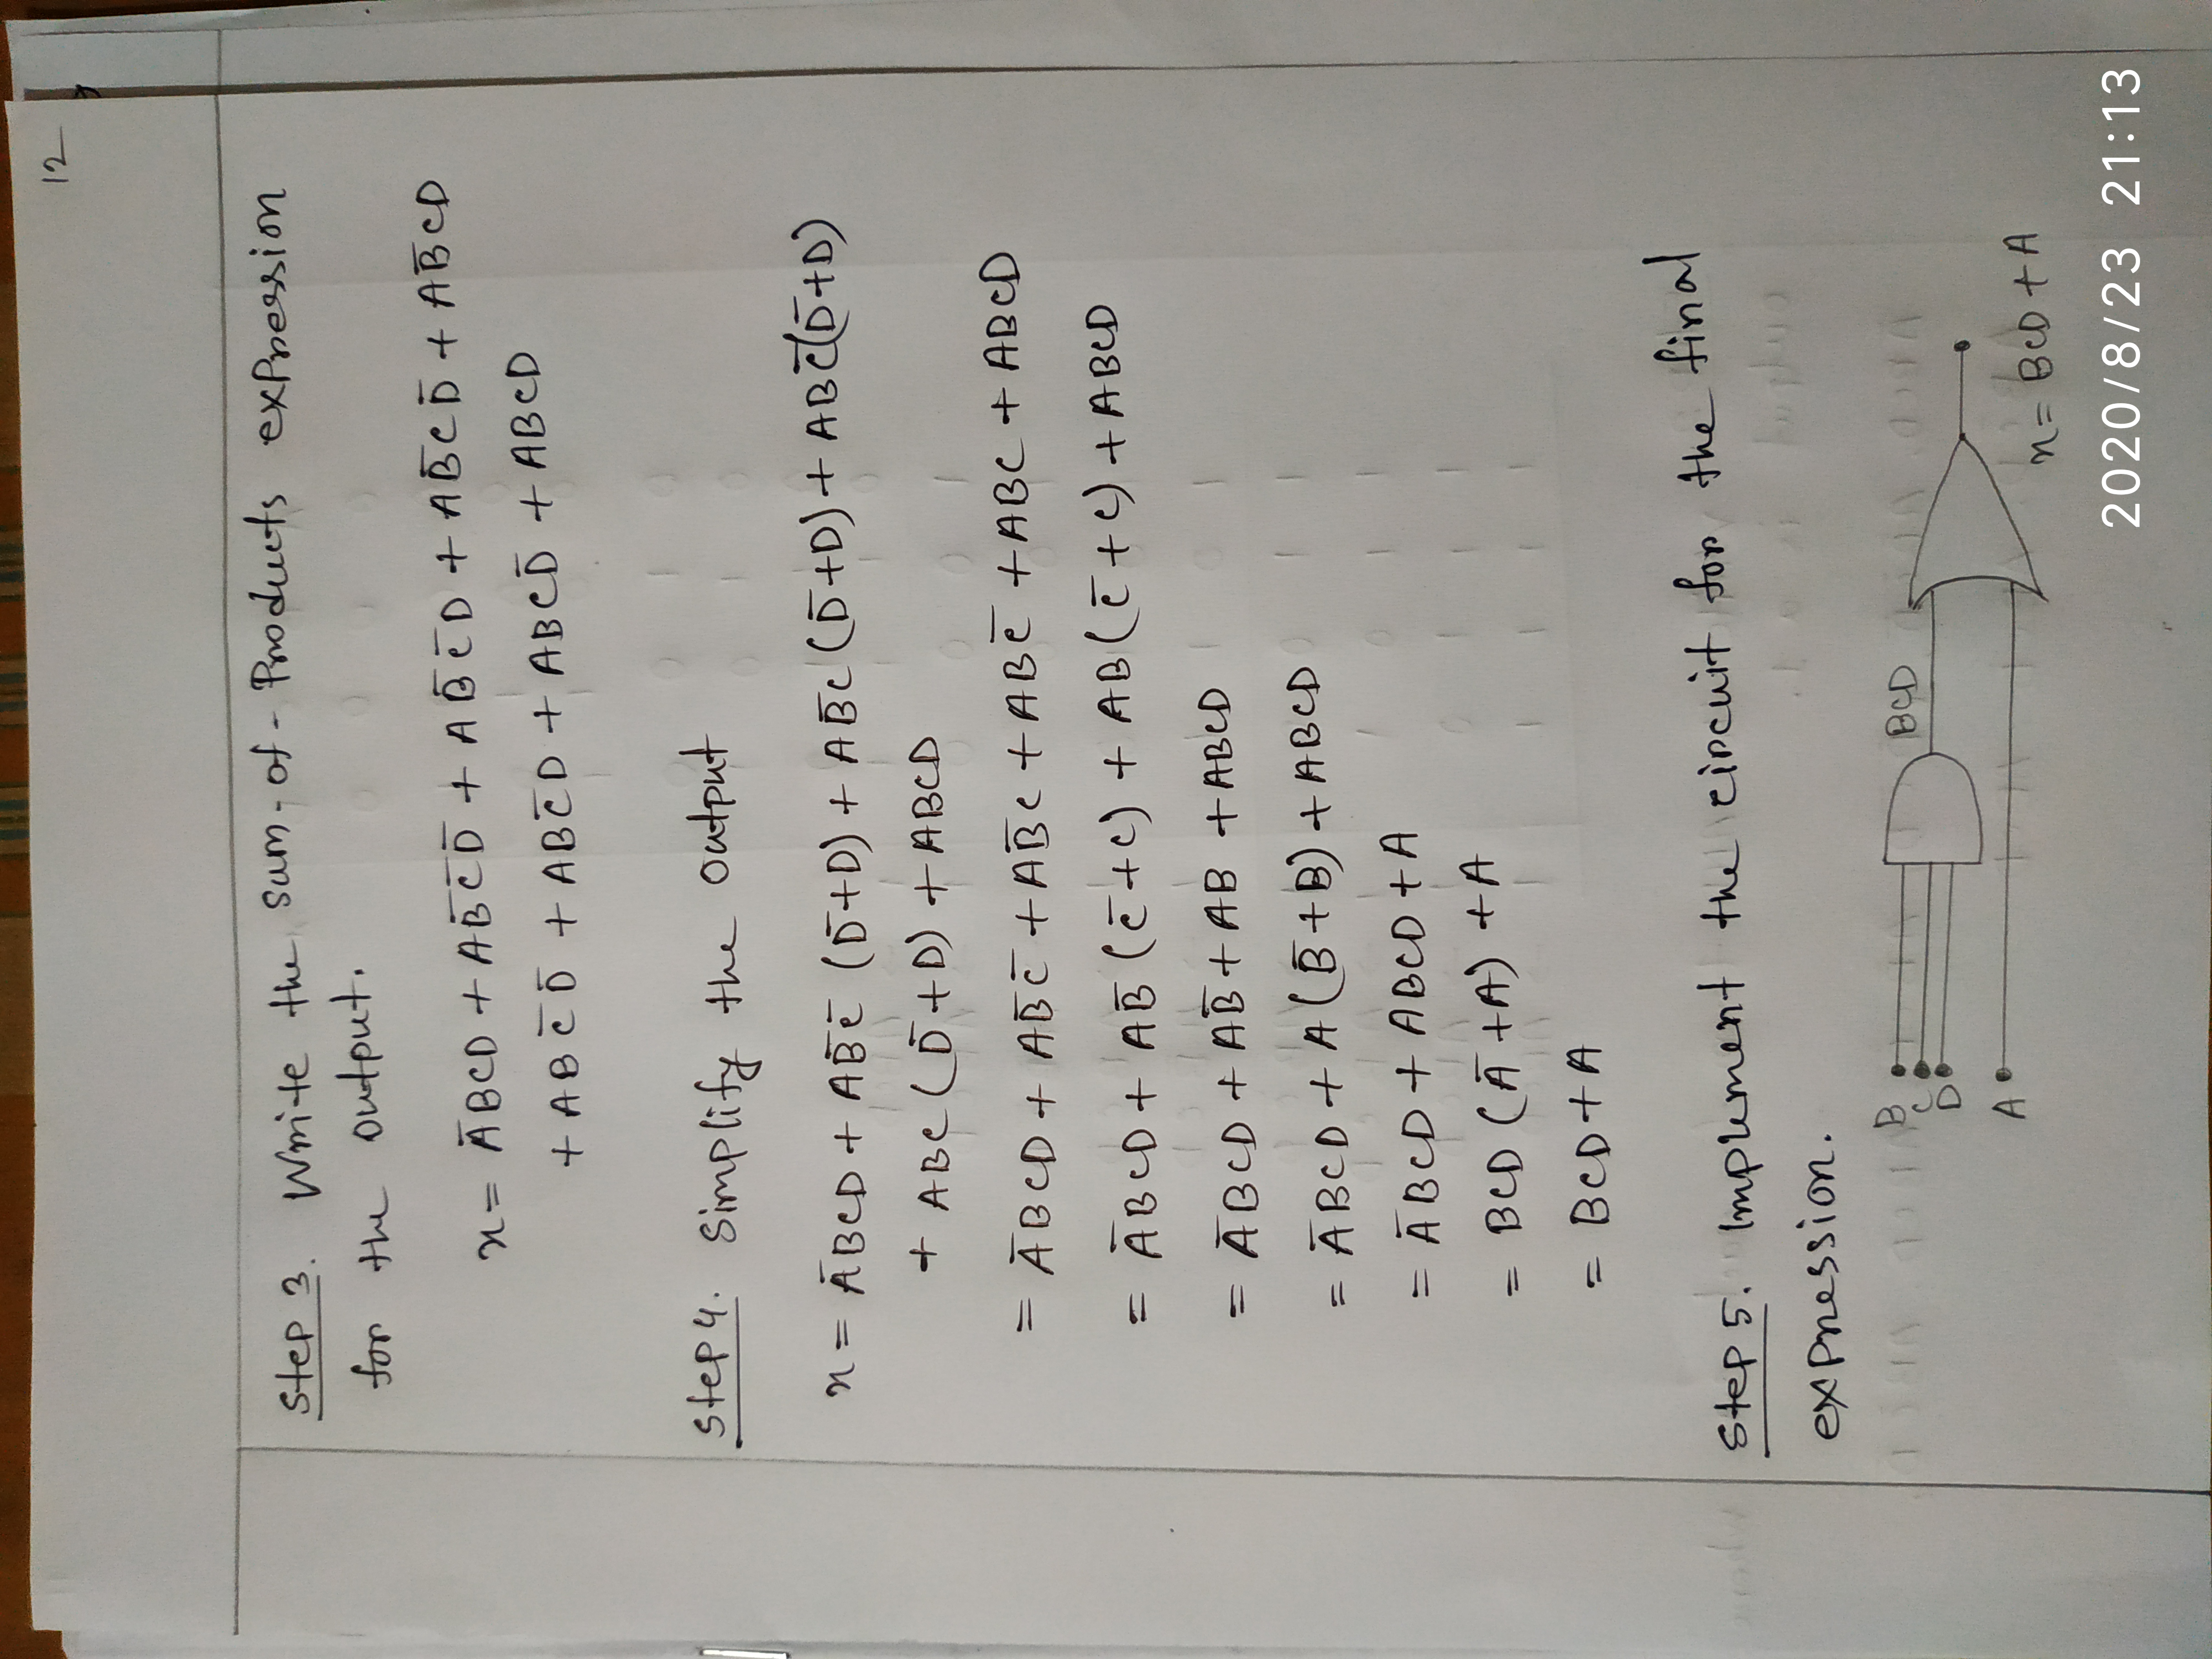 12
Step 3. Write the sum-of-Products expression
for the output.
x = A̅BCD + AB̅C̅D̅ + AB̅C̅D + AB̅CD̅ + AB̅CD
+ ABC̅D̅ + ABC̅D + ABCD̅ + ABCD
Step 4. Simplify the output
x = A̅BCD + AB̅C̅ (D̅+D) + AB̅C (D̅+D) + ABC̅(D̅+D)
+ ABC (D̅+D) + ABCD
= A̅BCD + AB̅C̅ + AB̅C + ABC̅ + ABC + ABCD
= A̅BCD + AB̅ (C̅+C) + AB (C̅+C) + ABCD
= A̅BCD + AB̅ + AB + ABCD
= A̅BCD + A (B̅+B) + ABCD
= A̅BCD + ABCD + A
= BCD (A̅+A) + A
= BCD + A
Step 5. Implement the circuit for the final
expression.
B
C
D
BCD
A
x = BCD + A
2020/8/23 21:13